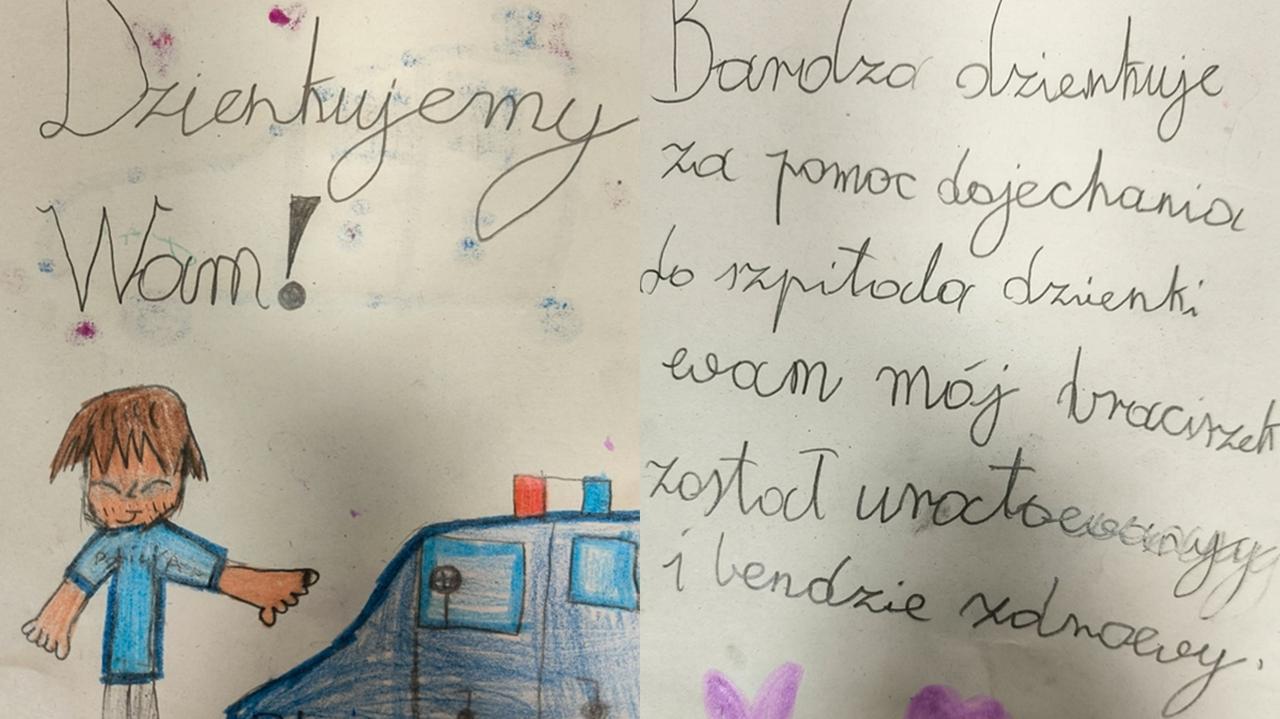 Dzienkujemy
Wam!
Bardzo dzienkuje
za pomoc dojechania
do szpitala dzienki
wam mój braciszek
zostoł urotowany
i bendzie zdrowy.